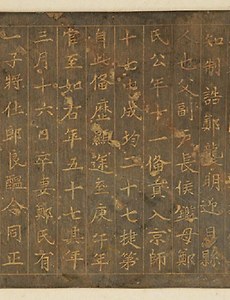 知制誥鄭龍朋迎日縣
人也父副戶長侯鑑母鄭
氏公年十一脩賁入京師
十七成均二十七捷第
自此脩歷顯途至庚午年
官至如右年五十七其年
三月十六日卒妻鄭氏有
一子將仕郎良醞令同正